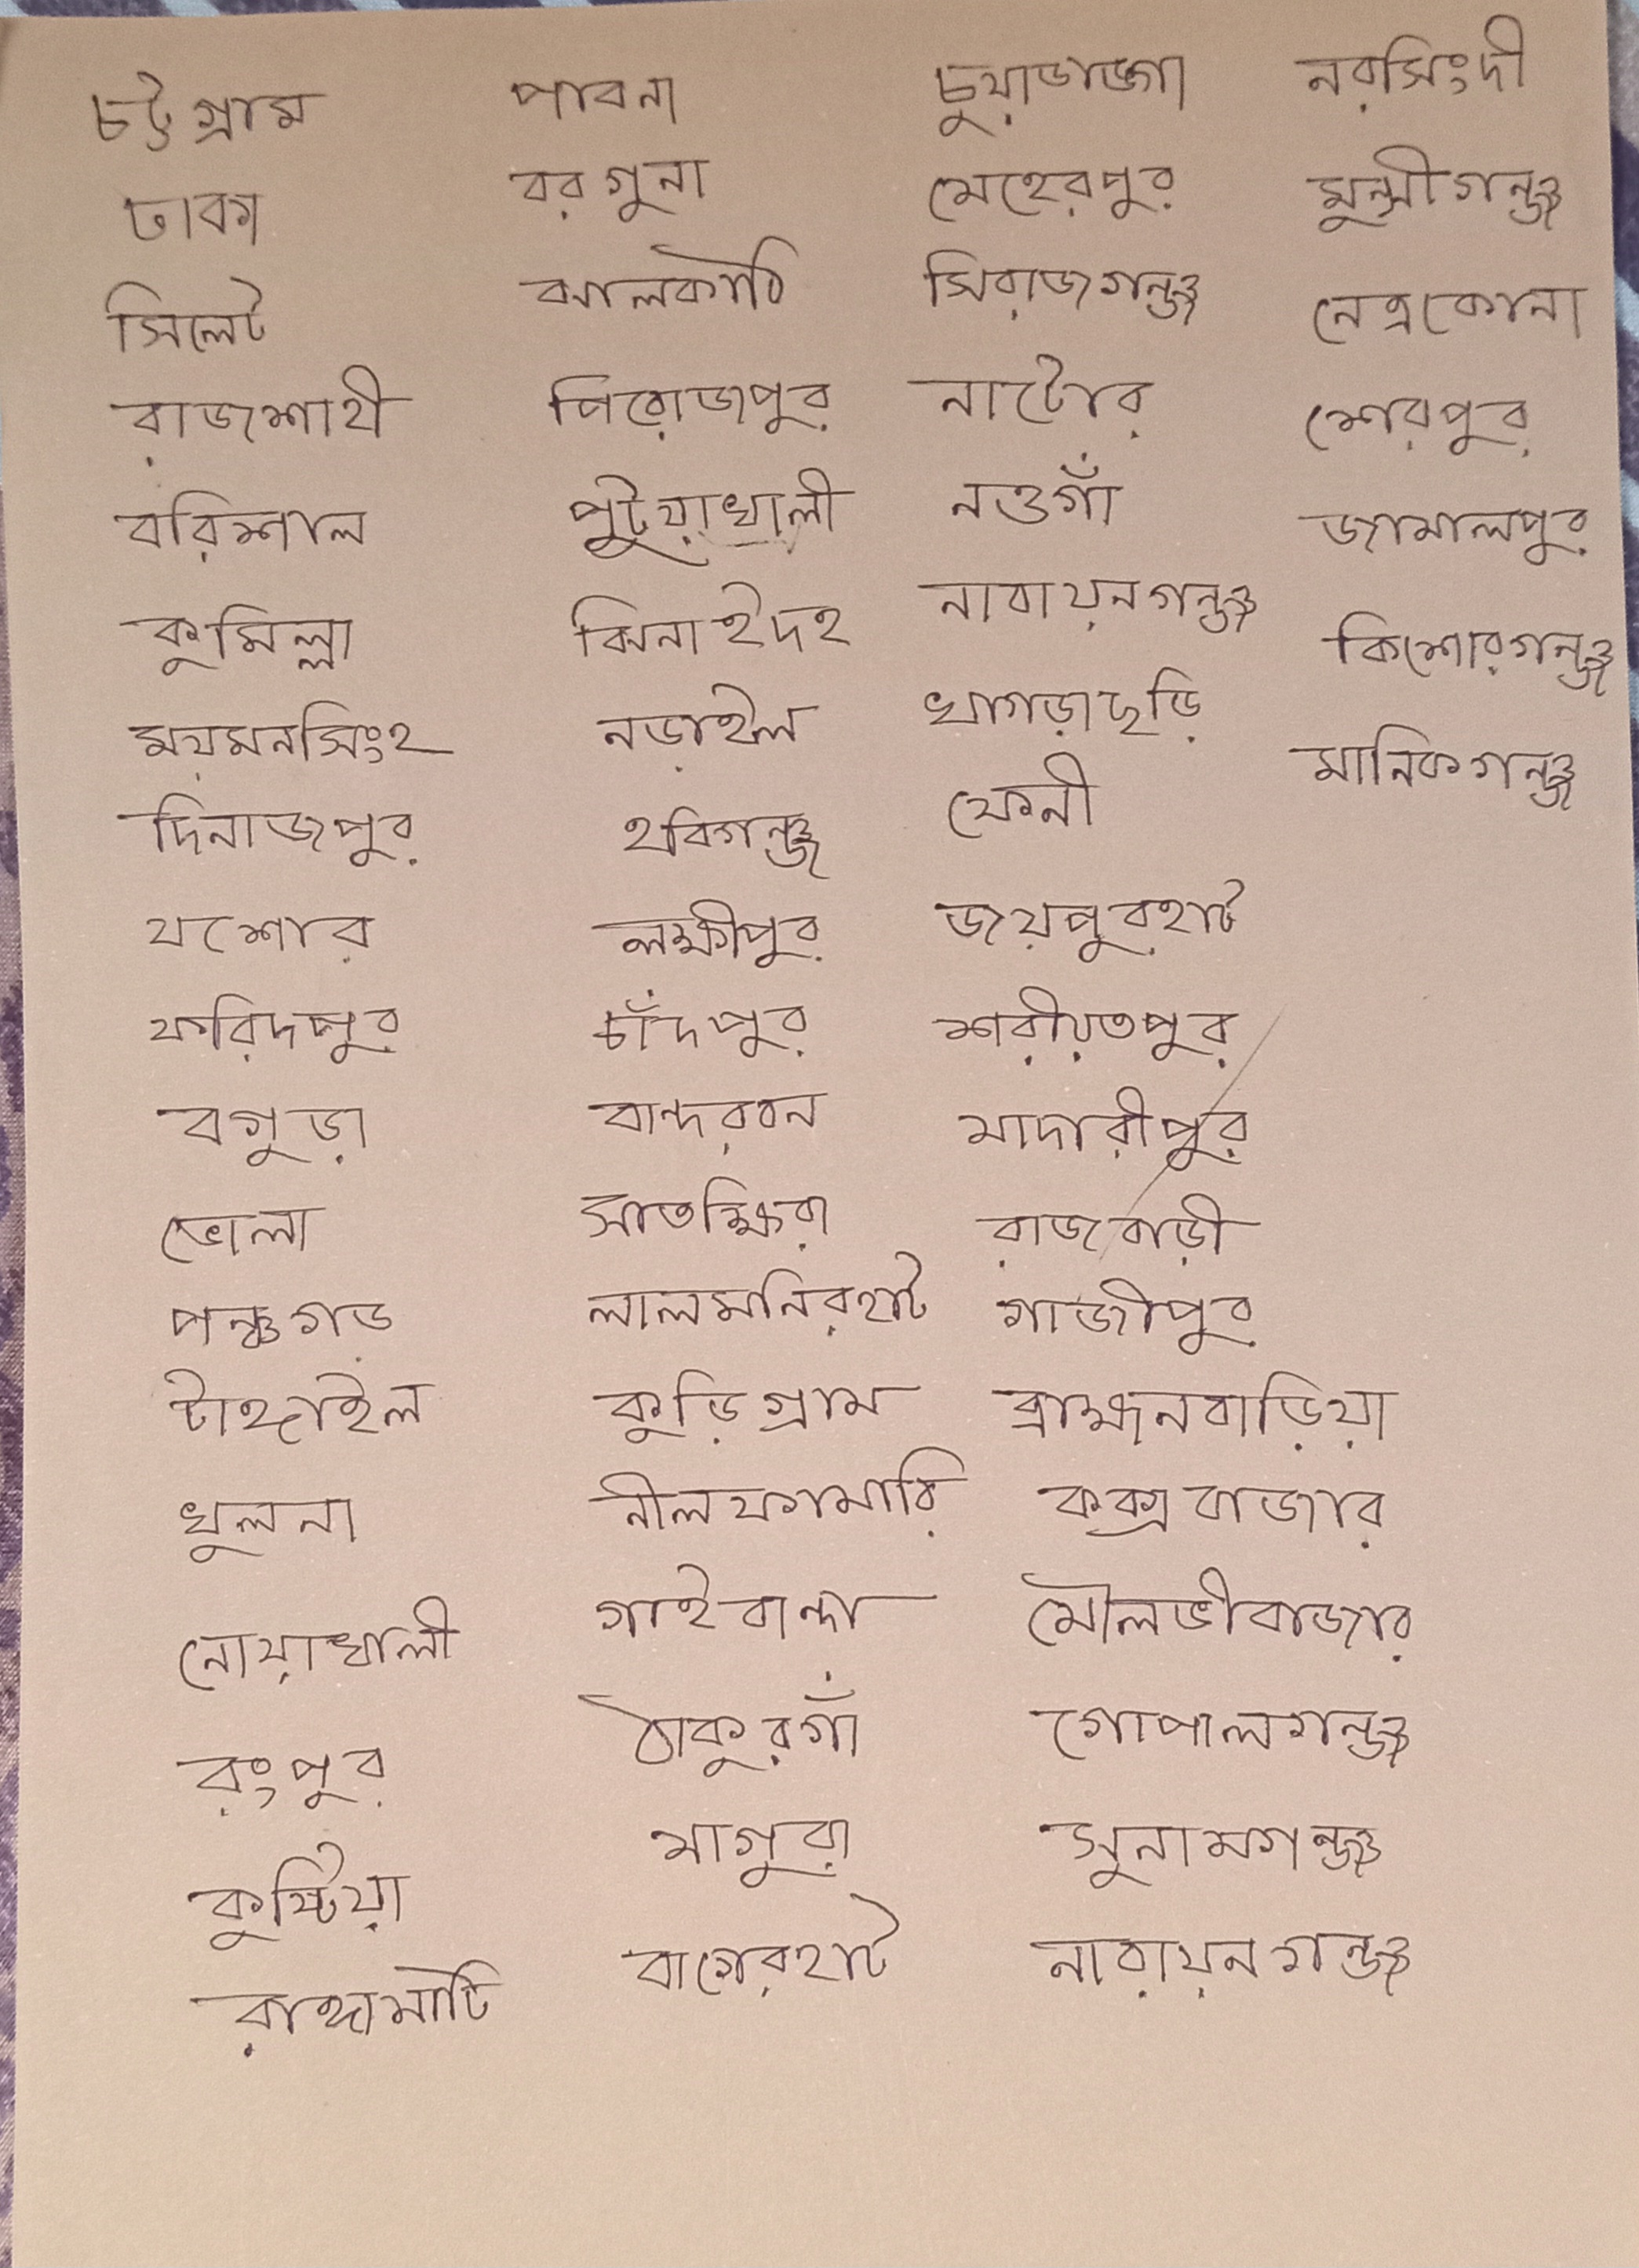 চট্টগ্রাম
ঢাকা
সিলেট
রাজশাহী
বরিশাল
কুমিল্লা
ময়মনসিংহ
দিনাজপুর
যশোর
ফরিদপুর
বগুড়া
ভোলা
পঞ্চগড়
টাঙ্গাইল
খুলনা
নোয়াখালী
রংপুর
কুষ্টিয়া
রাঙ্গামাটি
পাবনা
বরগুনা
ঝালকাঠি
পিরোজপুর
পুটুয়াখালী
ঝিনাইদহ
নড়াইল
হবিগন্জ্ঞ
লক্ষীপুর
চাঁদপুর
বান্দরবন
সাতক্ষিরা
লালমনিরহাট
কুড়িগ্রাম
নীলফামারি
গাইবান্দা
ঠাকুরগাঁ
মাগুরা
বাগেরহাট
চুয়াডাঙ্গা
মেহেরপুর
সিরাজগন্জ্ঞ
নাটোর
নওগাঁ
নারায়নগন্জ্ঞ
খাগড়াছড়ি
ফেনী
জয়পুরহাট
শরীয়তপুর
মাদারীপুর
রাজবাড়ী
গাজীপুর
ব্রাহ্মনবাড়িয়া
কক্সবাজার
মৌলভীবাজার
গোপালগন্জ্ঞ
সুনামগন্জ্ঞ
নারায়নগন্জ্ঞ
নরসিংদী
মুন্সীগন্জ্ঞ
নেত্রকোনা
শেরপুর
জামালপুর
কিশোরগন্জ্ঞ
মানিকগন্জ্ঞ